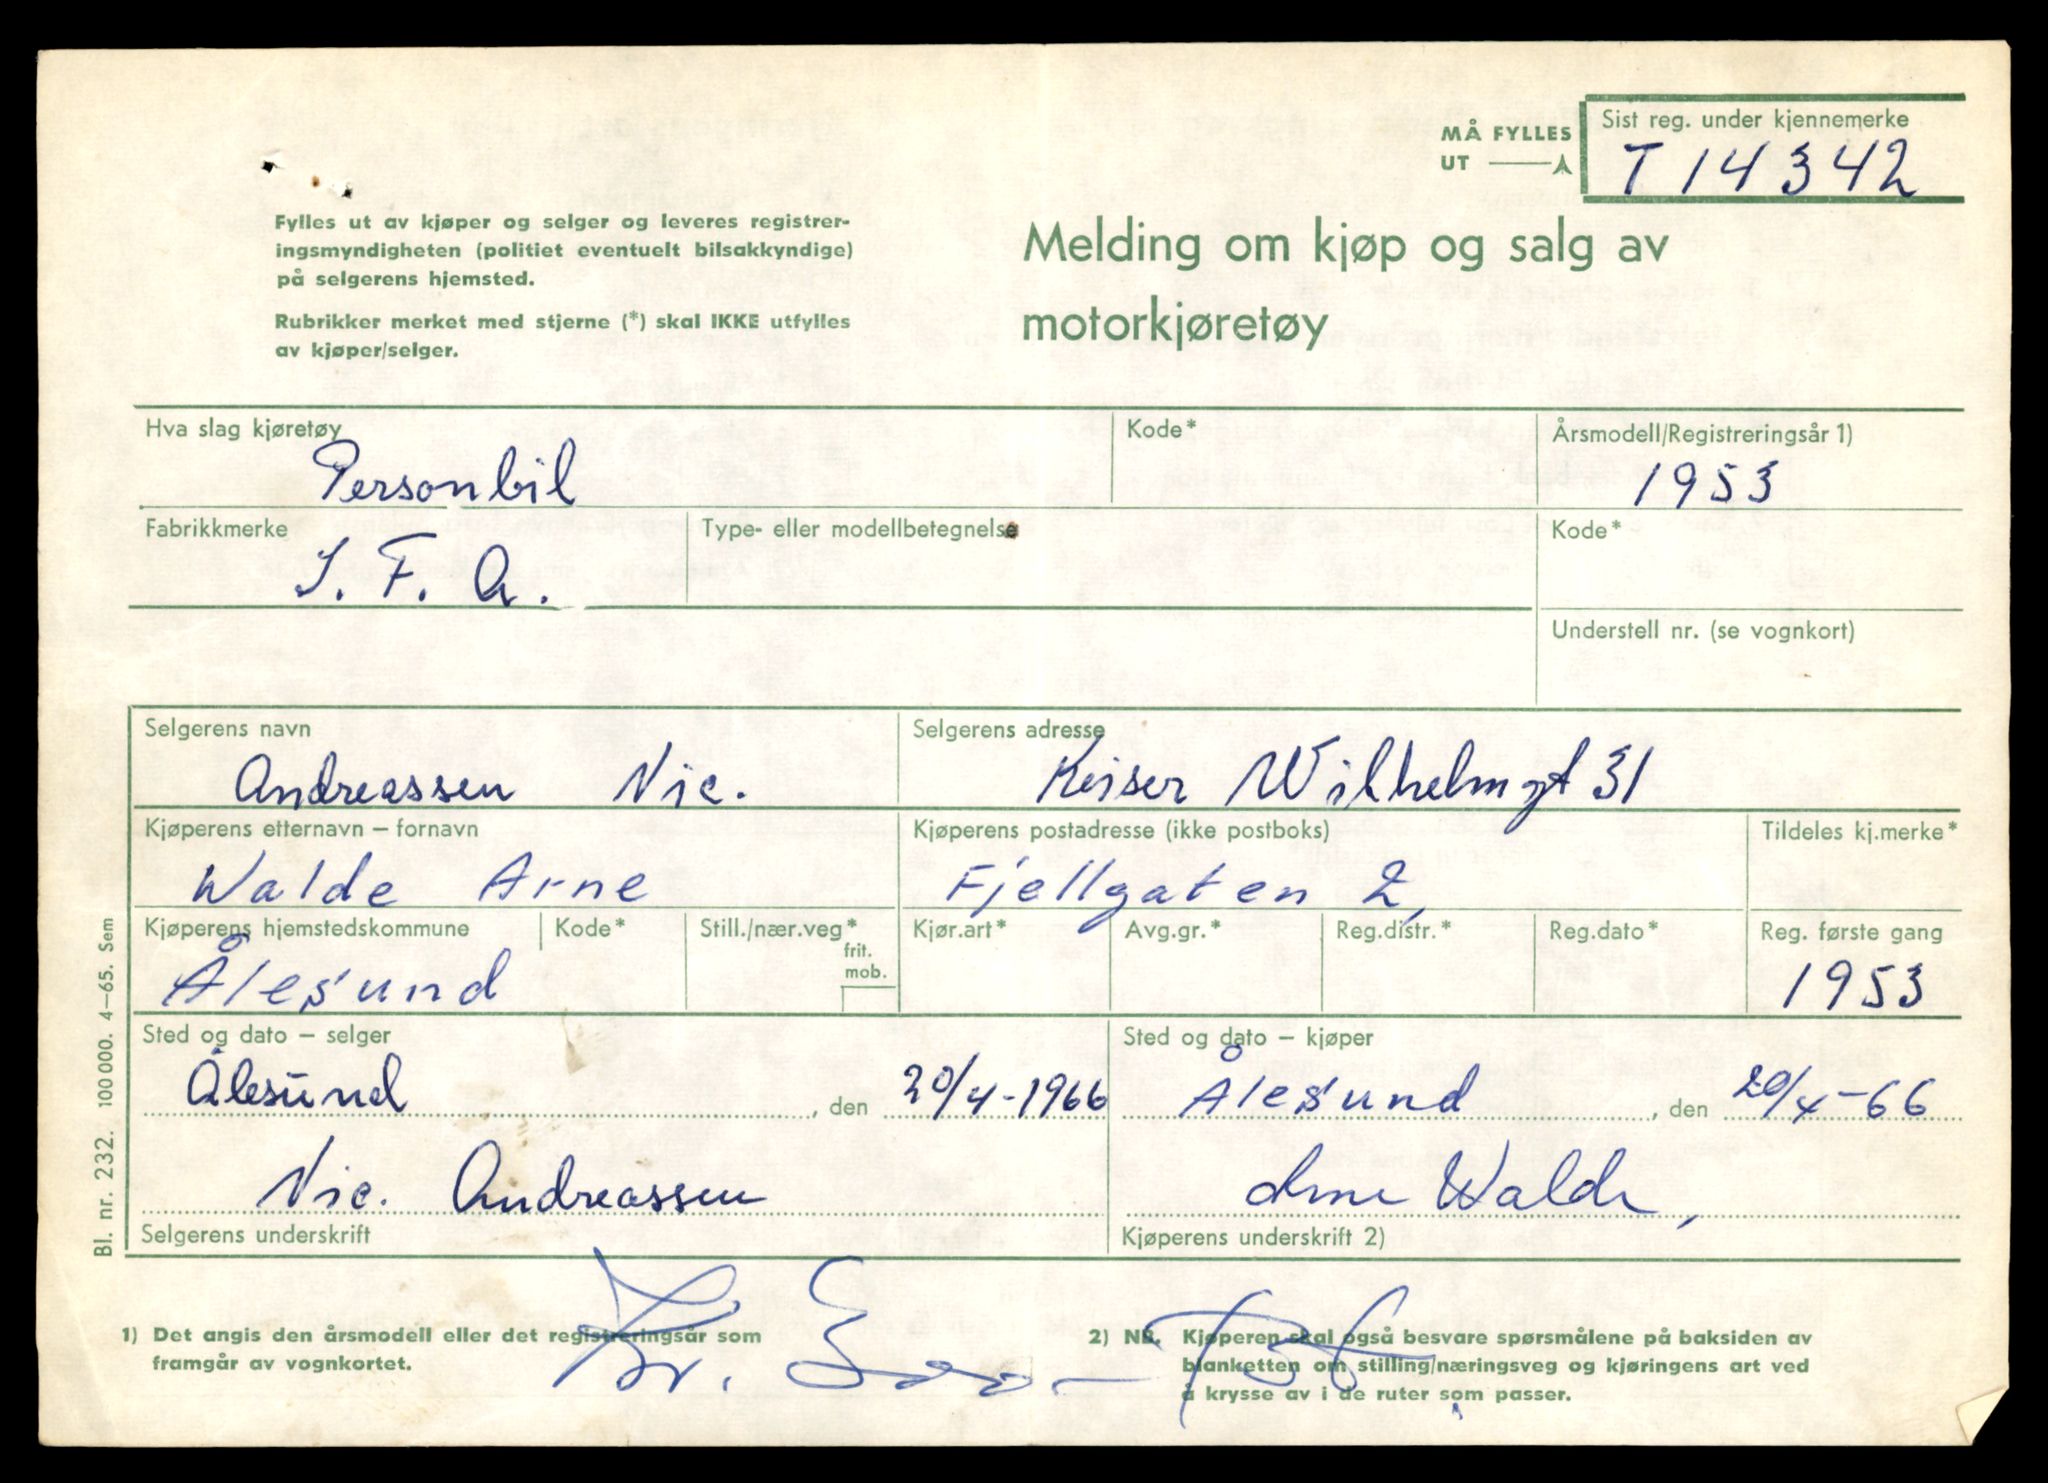 MÅ FYLLES UT
Sist reg. under kjennemerke
T 14342
Fylles ut av kjøper og selger og leveres registrer-
ingsmyndigheten (politiet eventuelt bilsakkyndige)
på selgerens hjemsted.
Rubrikker merket med stjerne (*) skal IKKE utfylles
av kjøper/selger.
Melding om kjøp og salg av
motorkjøretøy
Hva slag kjøretøy
Personbil
Kode*
Årsmodell/Registreringsår 1)
1953
Fabrikkmerke
I. F. A.
Type- eller modellbetegnelse
Kode*
Understell nr. (se vognkort)
Selgerens navn
Andreassen Nic.
Selgerens adresse
Keiser Wilhelmgt 31
Kjøperens etternavn – fornavn
Walde Arne
Kjøperens postadresse (ikke postboks)
Fjellgaten 2,
Tildeles kj.merke*
Kjøperens hjemstedskommune
Ålesund
Kode*
Still./nær.veg*
frit.
mob.
Kjør.art*
Avg.gr.*
Reg.distr.*
Reg.dato*
Reg. første gang
1953
Sted og dato – selger
Ålesund, den 20/4-1966
Sted og dato – kjøper
Ålesund, den 20/4-66
Nic. Andreassen
Selgerens underskrift
Arne Walde,
Kjøperens underskrift 2)
1) Det angis den årsmodell eller det registreringsår som
framgår av vognkortet.
2) NB. Kjøperen skal også besvare spørsmålene på baksiden av
blanketten om stilling/næringsveg og kjøringens art ved
å krysse av i de ruter som passer.
Bl. nr. 232. 100 000. 4–65. Sem